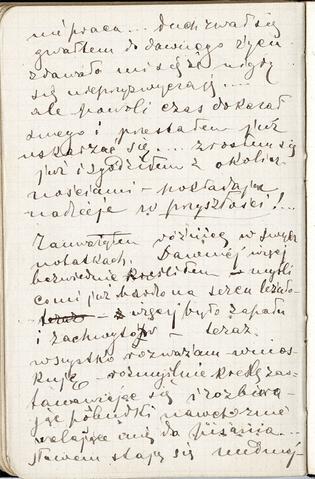 mi praca.... Duch zwał się
gwałtem do dawnego życia
zdawało mi się że nigdy
się nieprzyzwyczaję....
ale powoli czas dokazał
swego i przestałem już
uskarżać się.... zrosłem się
już i zgodziłem z okolicz
nościami – pokładając
nadzieje w przyszłości!...
Zauważyłem różnicę w swych
notatkach. Dawniej więcej
bezwiednie kreśliłem – myśli
co mi już bardzo na sercu leżało
więcej było zapału
i zachwytów – teraz
wszystko rozważam – wnios
kuję – rozmyślnie kreślę zas
tanawiając się i rozbiera
jąc pobudki nawet
do pisania...
słowem staję się